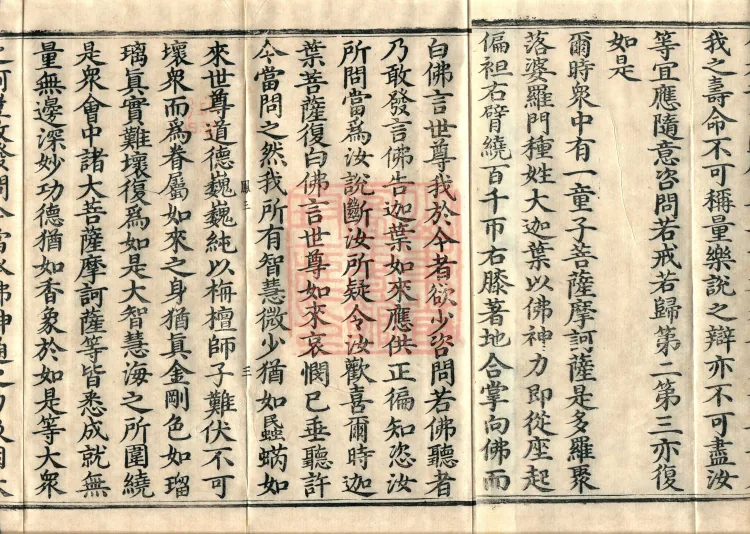 我之壽命不可稱量樂說之辯亦不可盡汝
等宜應隨意咨問若戒若歸第二第三亦復
如是
爾時衆中有一童子菩薩摩訶薩是多羅聚
落婆羅門種姓大迦葉以佛神力即從座起
偏袒右臂繞百千帀右膝著地合掌向佛而
白佛言世尊我於今者欲少咨問若佛聽者
乃敢發言佛告迦葉如來應供正徧知恣汝
所問當爲汝說斷汝所疑令汝歡喜爾時迦
葉菩薩復白佛言世尊如來哀憫已垂聽許
今當問之然我所有智慧微少猶如蟁蜹如
鳳三 三
來世尊道德巍巍純以栴檀師子難伏不可
壞衆而爲眷屬如來之身猶真金剛色如瑠
璃真實難壞復爲如是大智慧海之所圍繞
是衆會中諸大菩薩摩訶薩等皆悉成就無
量無邊深妙功德猶如香象於如是等大衆